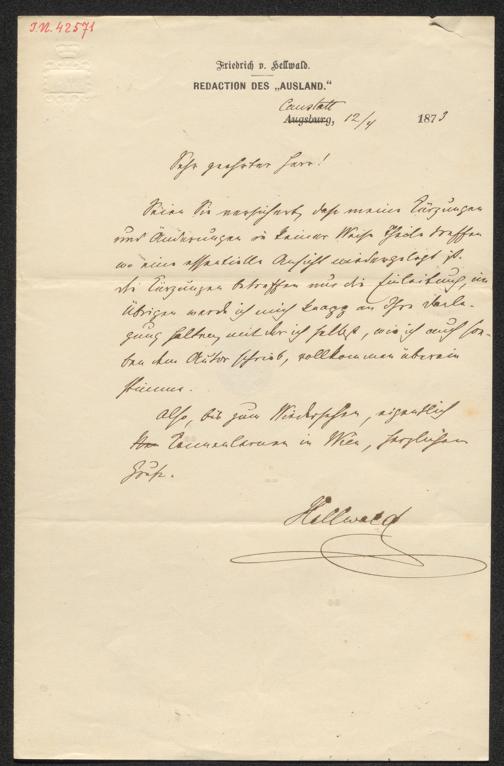 I.N. 42571
Friedrich v. Hellwald.
REDACTION DES „AUSLAND."
Canstatt
Augsburg, 12/4 1873
Sehr geehrter Herr!
Seien Sie versichert, daß meine Kürzungen
und Änderungen in keiner Weise Theile treffen
wo eine essentielle Ansicht niedergelegt ist.
Die Kürzungen betreffen nur die Einleitung, im
Übrigen werde ich mich knapp an Ihre Darle-
gung halten, mit der ich selbst, wie ich auch so-
eben dem Autor schrieb, vollkommen überein
stimme.
Also, bis zum Wiedersehen, eigentlich
Kennenlernen in Wien, herzlichen
Gruß.
Hellwald